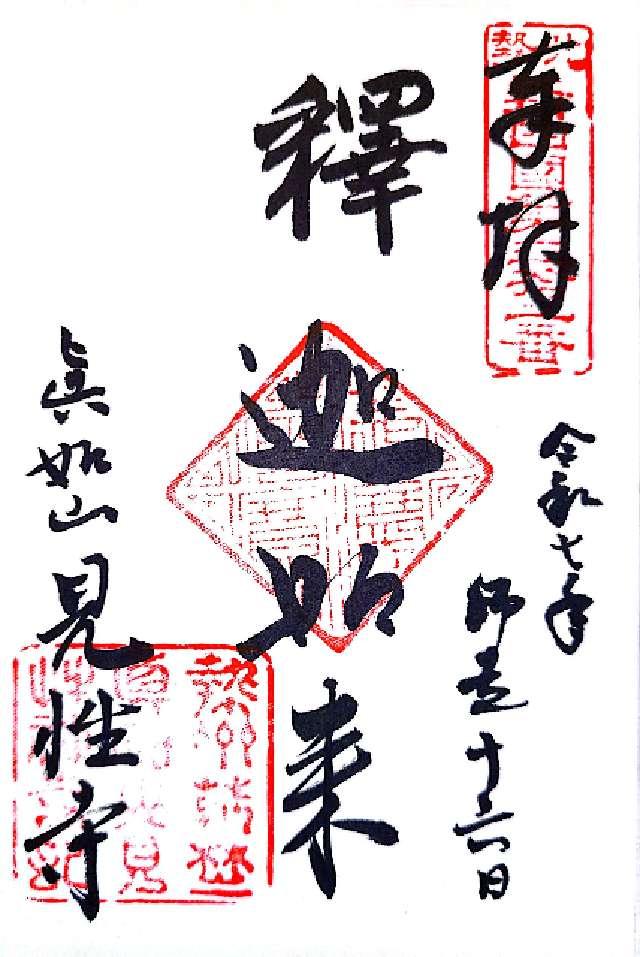 奉拝
令和七年
師走十六日
釋迦如来
眞如山見性寺